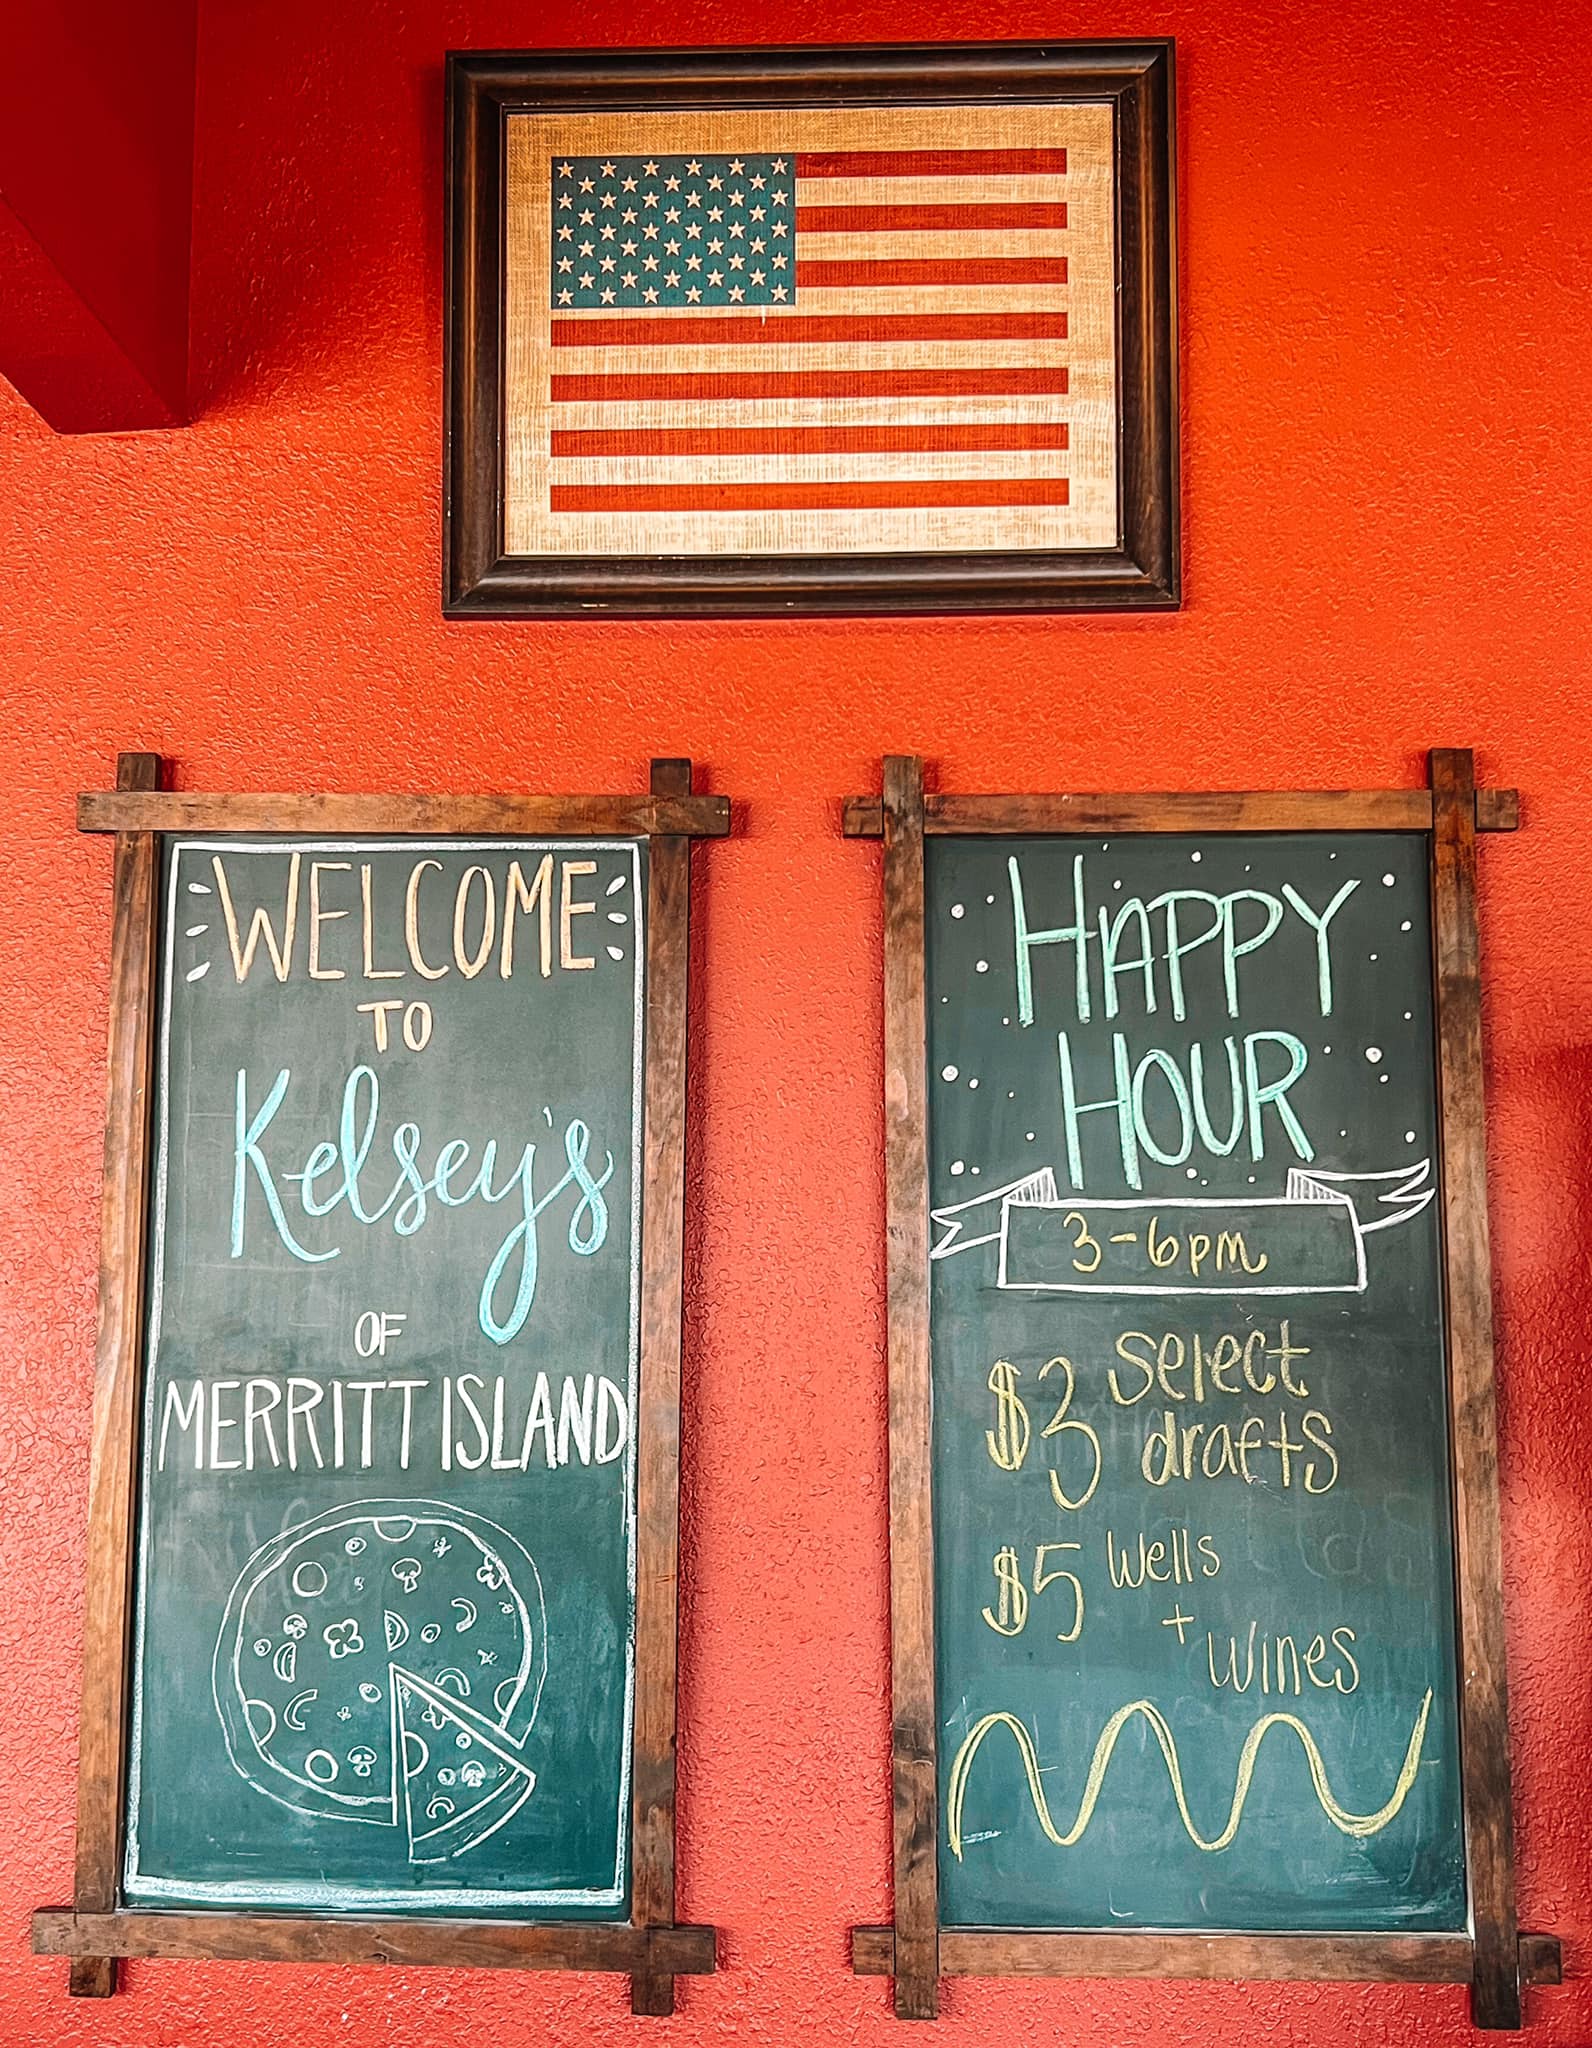 WELCOME
TO
Kelsey's
OF
MERRITT ISLAND
HAPPY
HOUR
3-6pm
$3 select
drafts
$5 wells
+ wines